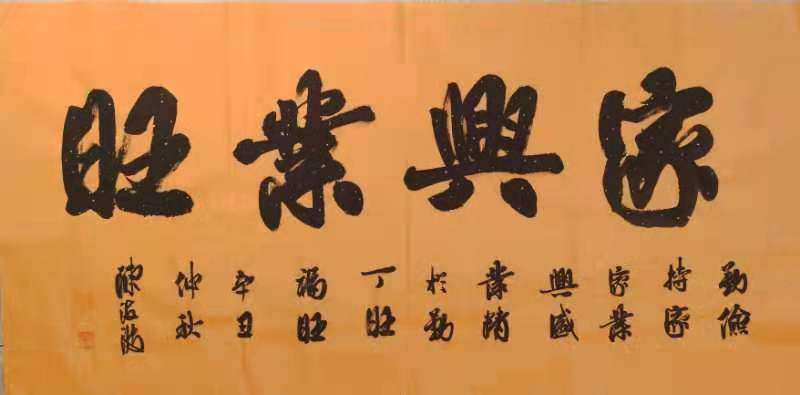 家興業旺
勤儉
持家
家業
興盛
業精
於勤
丁旺
福旺
辛丑
仲秋